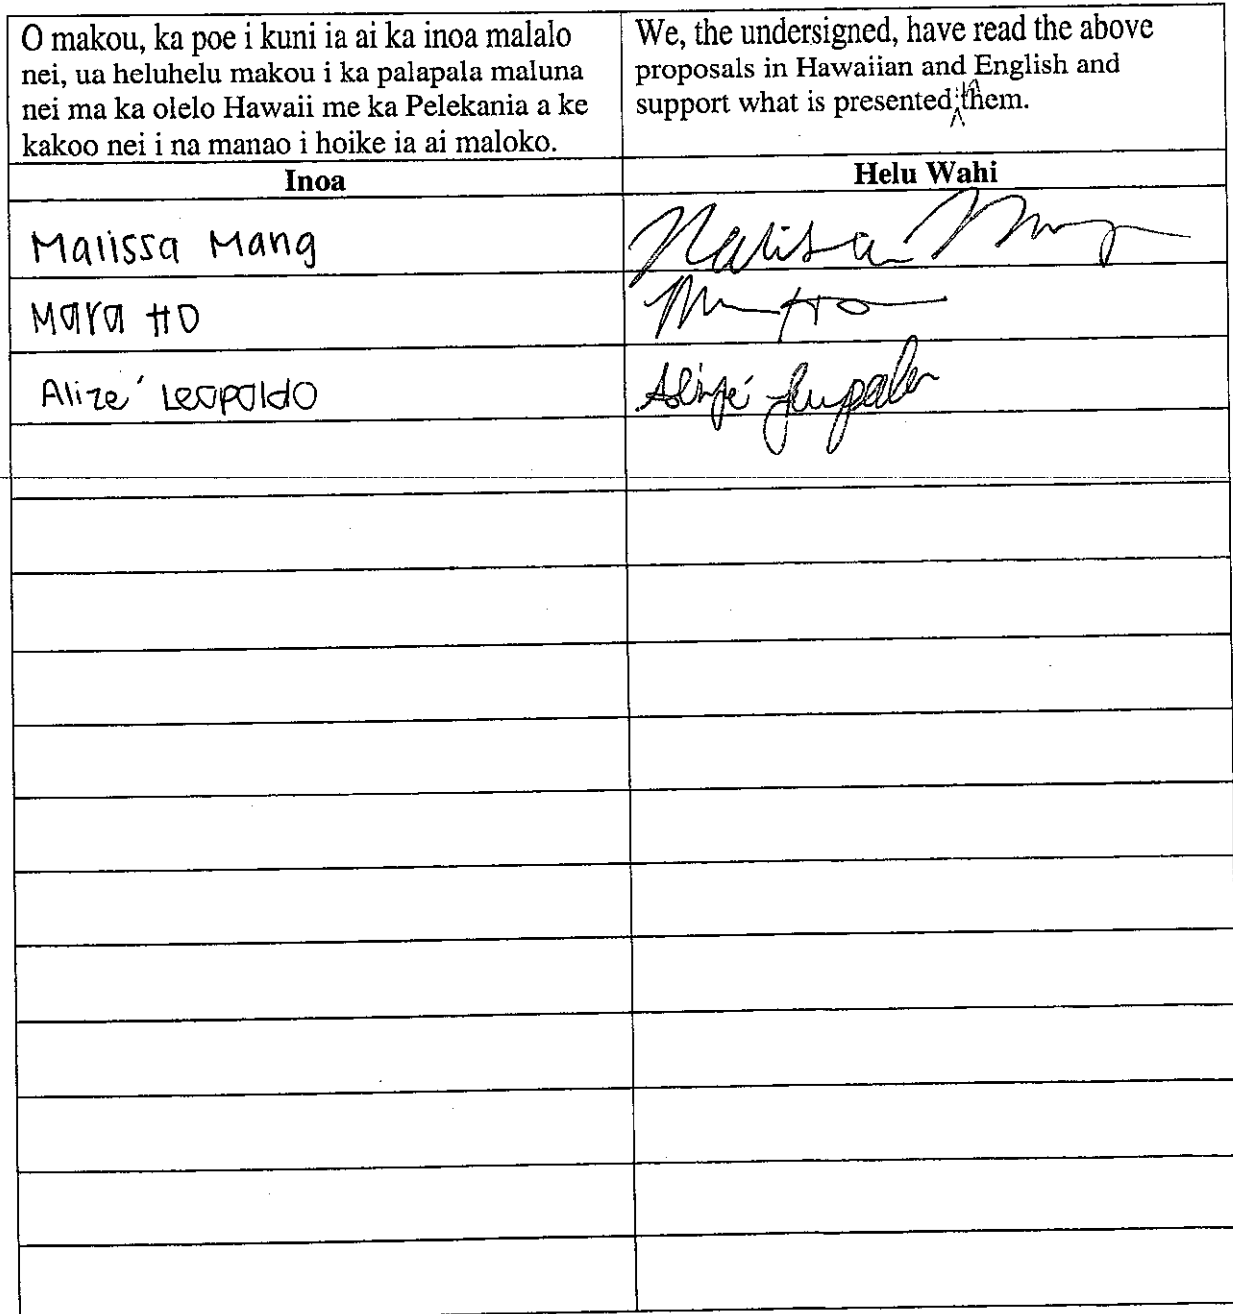 O makou, ka poe i kuni ia ai ka inoa malalo
nei, ua heluhelu makou i ka palapala maluna
nei ma ka olelo Hawaii me ka Pelekania a ke
kakoo nei i na manao i hoike ia ai maloko.
We, the undersigned, have read the above
proposals in Hawaiian and English and
support what is presented in them.
Inoa
Helu Wahi
Malissa Mang
Malissa Mang
Mara Ho
M Ho
Alizé Leopoldo
Alizé